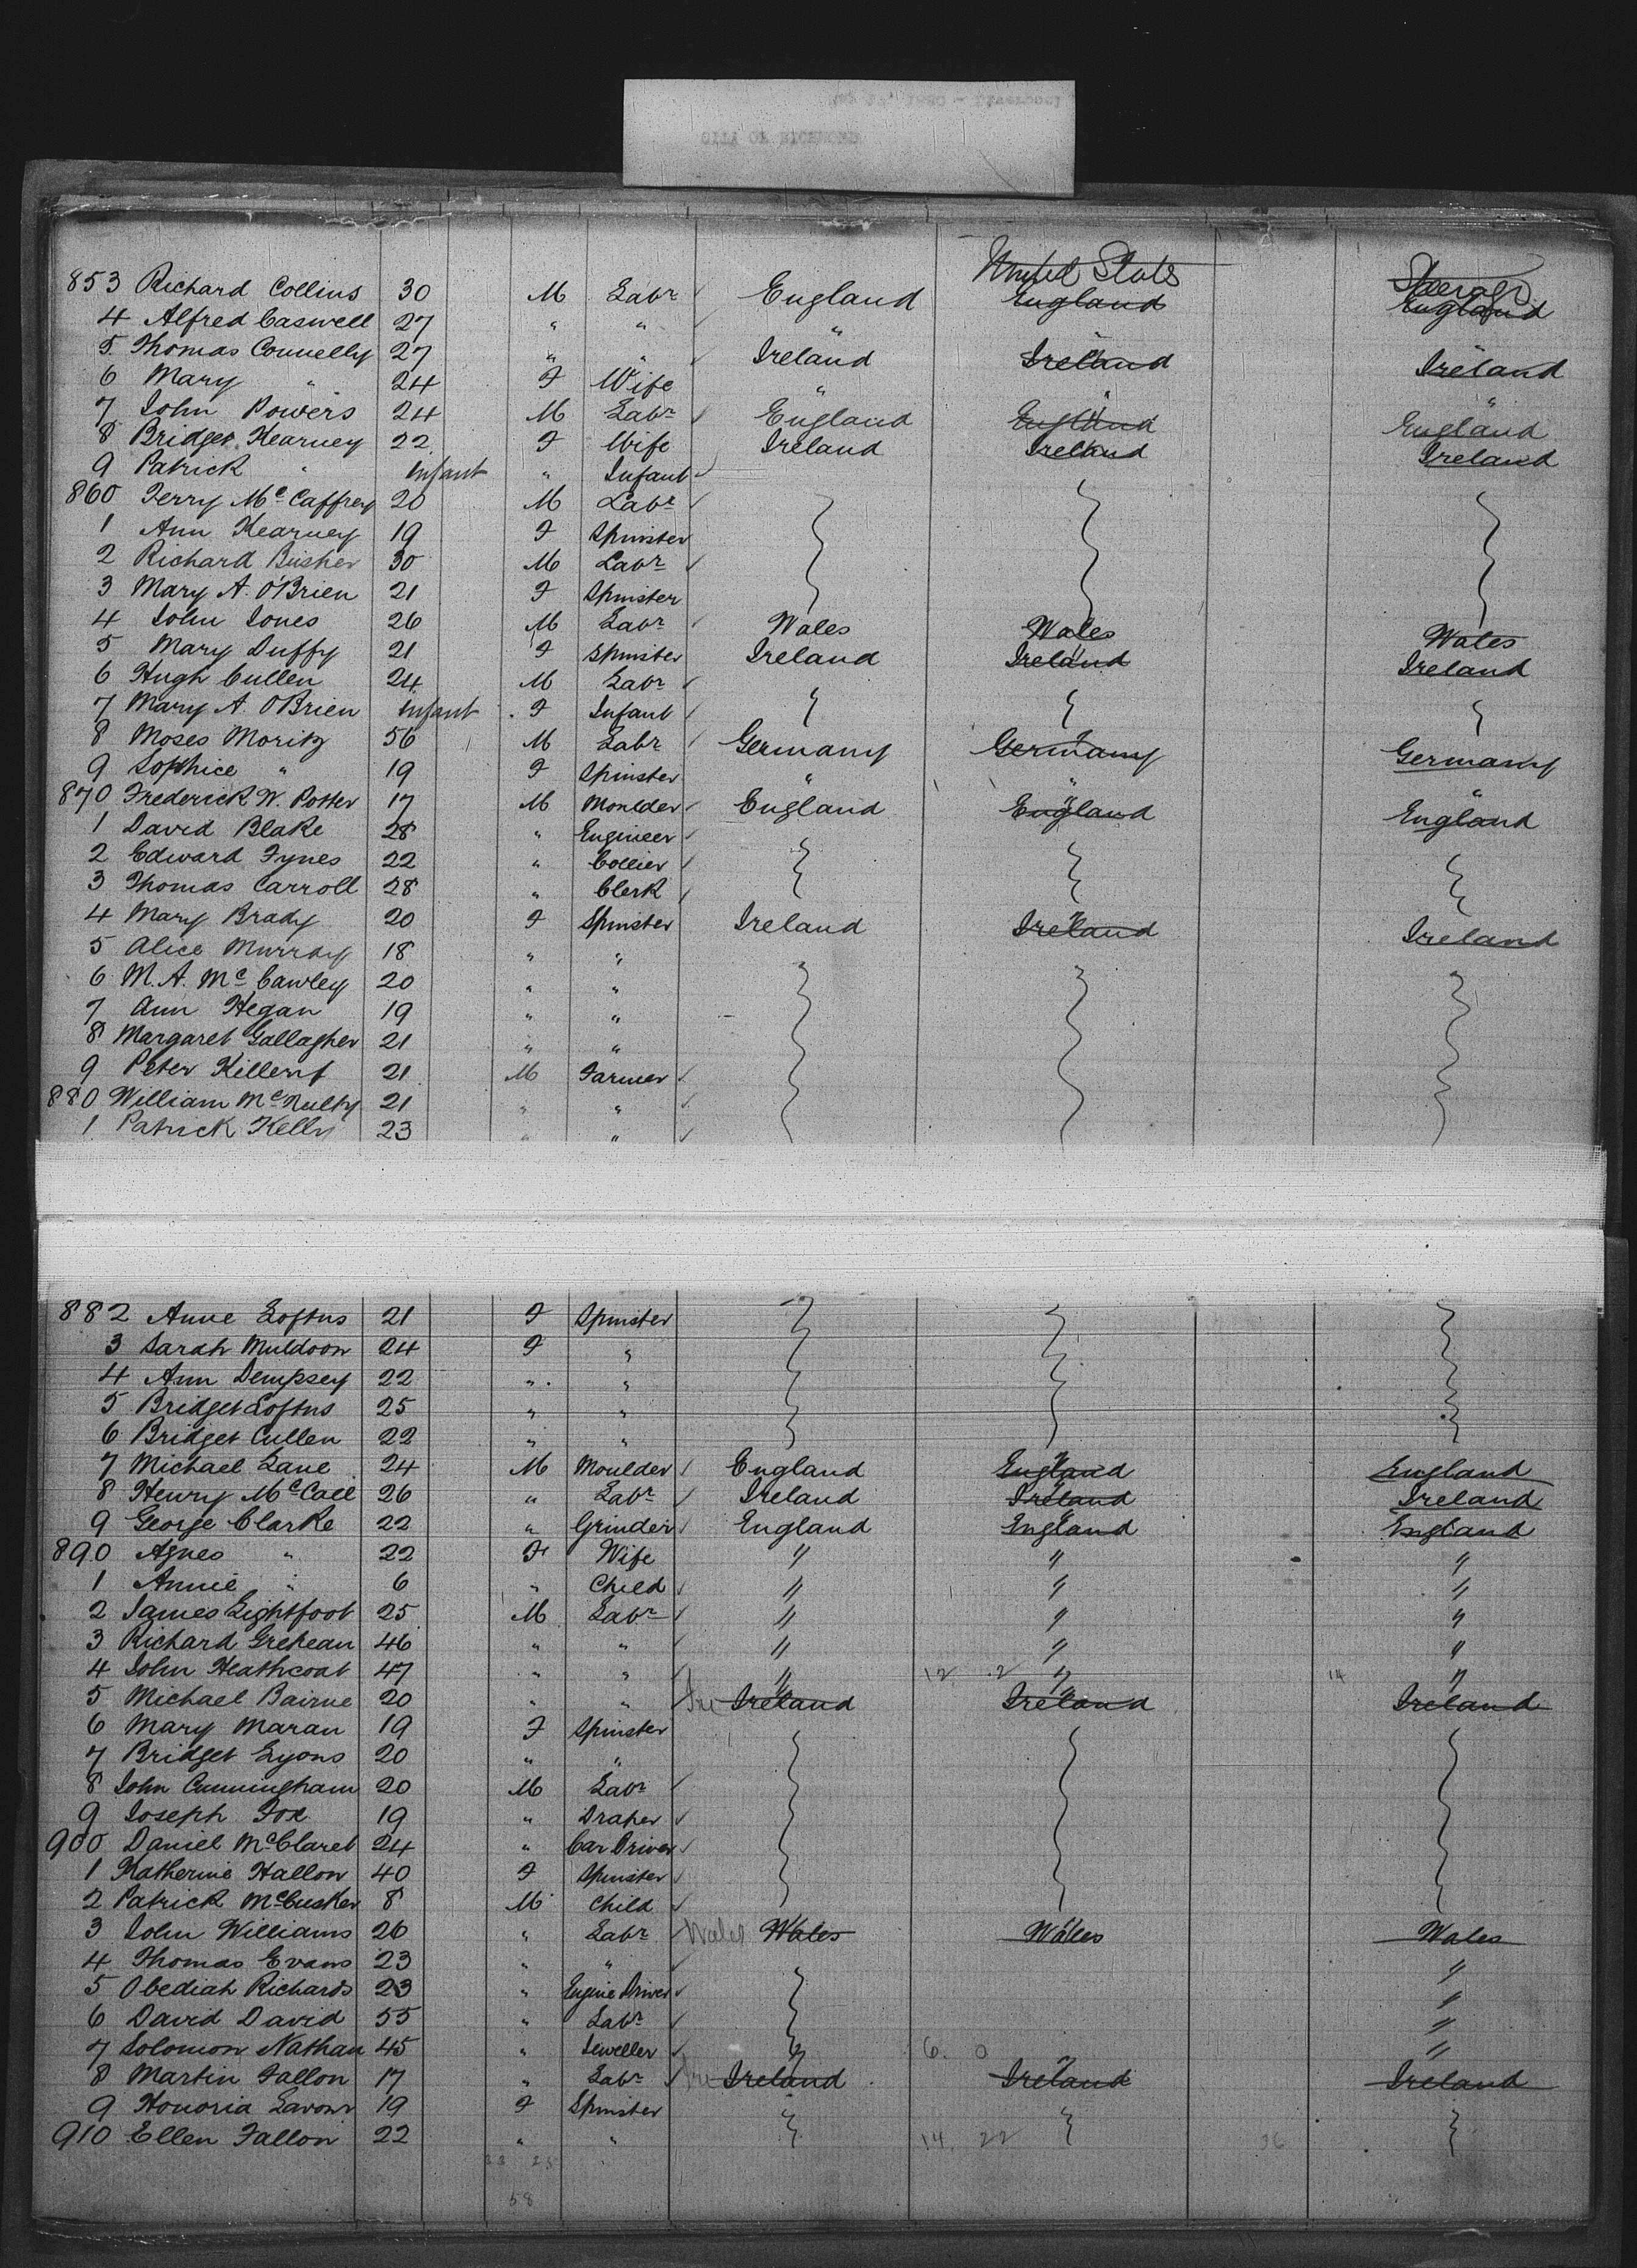 853 Richard Collins 30 M Labr England United States England Steerage England
4 Alfred Caswell 27 " " " "
5 Thomas Connelly 27 " " Ireland Ireland Ireland
6 Mary " 24 F Wife " "
7 John Powers 24 M Labr England England England
8 Bridget Kearney 22 F Wife Ireland Ireland Ireland
9 Patrick " Infant " Infant
860 Terry McCaffrey 20 M Labr
1 Ann Kearney 19 F Spinster
2 Richard Busher 30 M Labr
3 Mary A. O'Brien 21 F Spinster
4 John Jones 26 M Labr Wales Wales Wales
5 Mary Duffy 21 F Spinster Ireland Ireland Ireland
6 Hugh Cullen 24 M Labr
7 Mary A. O'Brien Infant F Infant
8 Moses Moritz 56 M Labr Germany Germany Germany
9 Sophice " 19 F Spinster " " "
870 Frederick W. Potter 17 M Moulder England England England
1 David Blake 28 " Engineer
2 Edward Fynes 22 " Collier
3 Thomas Carroll 28 " Clerk
4 Mary Brady 20 F Spinster Ireland Ireland Ireland
5 Alice Murray 18 " "
6 M. A. McCawley 20 " "
7 Ann Hegan 19 " "
8 Margaret Gallagher 21 " "
9 Peter 21 M Farmer
880 William McNulty 21 " "
1 Patrick Kelly 23 " "
882 Anne Loftus 21 F Spinster
3 Sarah Muldoon 24 F "
4 Ann Dempsey 22 " "
5 Bridget Loftus 25 " "
6 Bridget Cullen 22 " "
7 Michael Lane 24 M Moulder England England England
8 Henry McCall 26 " Labr Ireland Ireland Ireland
9 George Clarke 22 " Grinder England England England
890 Agnes " 22 F Wife " " "
1 Annie " 6 " Child " " "
2 James Lightfoot 25 M Labr " " "
3 Richard 46 " " " " "
4 John Heathcoat 47 " " " 12 2 " 14 "
5 Michael Bairne 20 " " Ire Ireland Ireland Ireland
6 Mary Maran 19 F Spinster
7 Bridget Lyons 20 " "
8 John Cunningham 20 M Labr
9 Joseph Fox 19 " Draper
900 Daniel McClaret 24 " Car Driver
1 Katherine Hallon 40 F Spinster
2 Patrick McCusker 8 M Child
3 John Williams 26 " Labr Wales Wales Wales Wales
4 Thomas Evans 23 " " "
5 Obediah Richards 23 " Engine Driver "
6 David David 55 " Labr "
7 Solomon Nathan 45 " Jeweller 6. 0 "
8 Martin Fallon 17 " Labr Ire Ireland Ireland Ireland
9 Honoria 19 F Spinster
910 Ellen Fallon 22 " " 14. 22 36
58